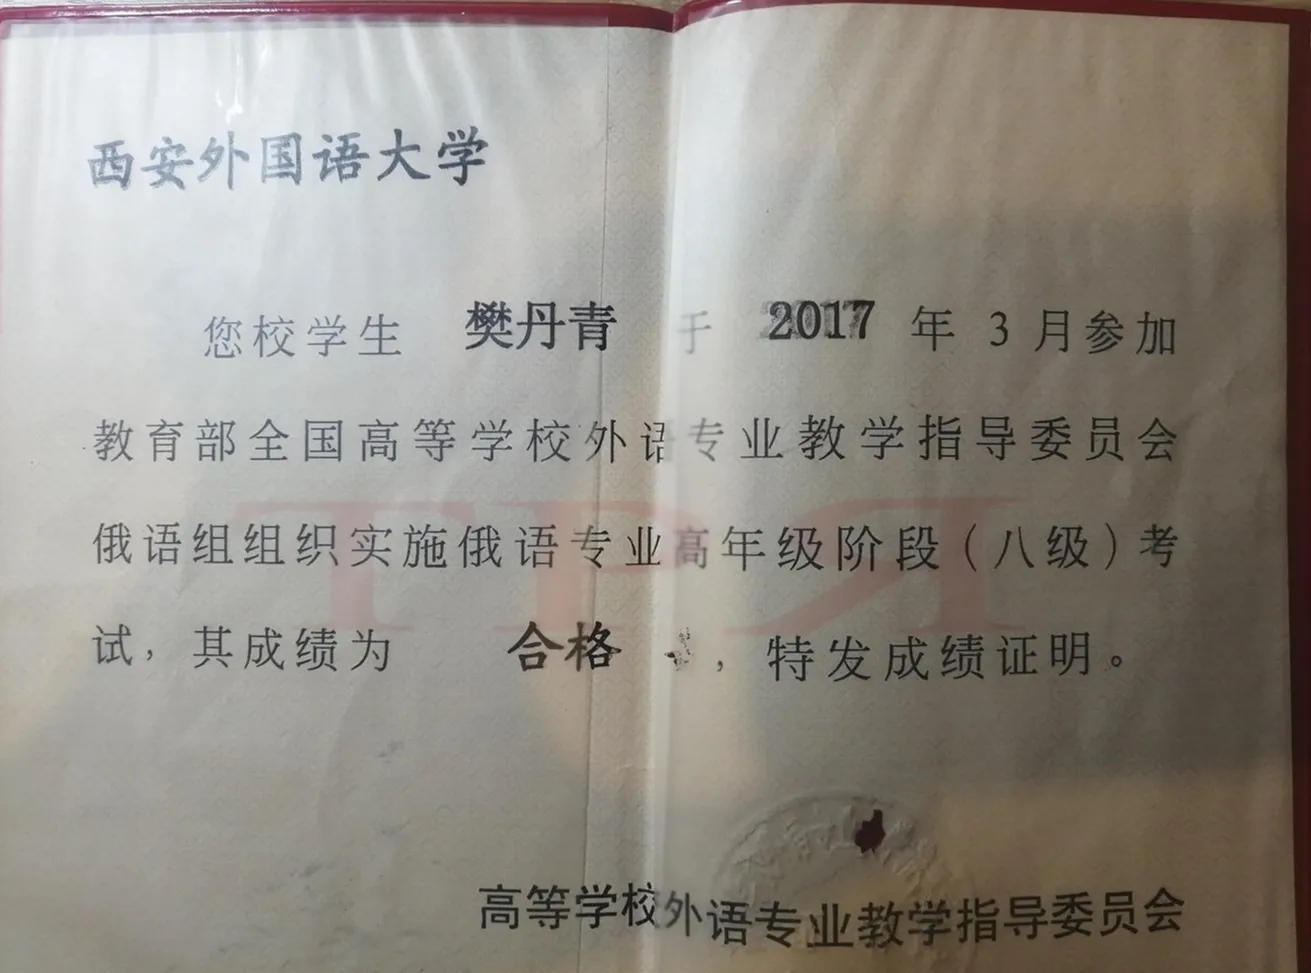 西安外国语大学
您校学生 樊丹青 于 2017 年 3 月参加
教育部全国高等学校外语专业教学指导委员会
俄语组组织实施俄语专业高年级阶段（八级）考
试，其成绩为 合格 ，特发成绩证明。
ТРЯ
高等学校外语专业教学指导委员会